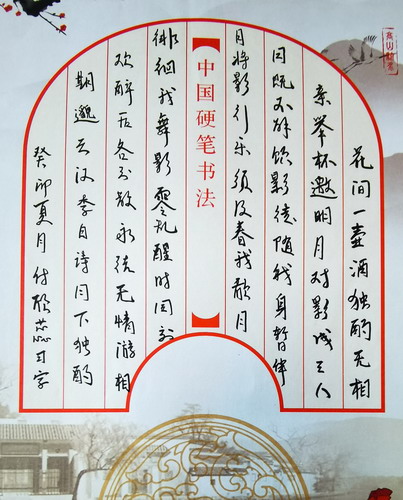 花间一壶酒独酌无相
亲举杯邀明月对影成三人
月既不解饮影徒随我身暂伴
月将影行乐须及春我歌月
中国硬笔书法
徘徊我舞影零乱醒时同交
欢醉后各分散永结无情游相
期邈云汉李白诗月下独酌
癸卯夏月付欣蕊习字